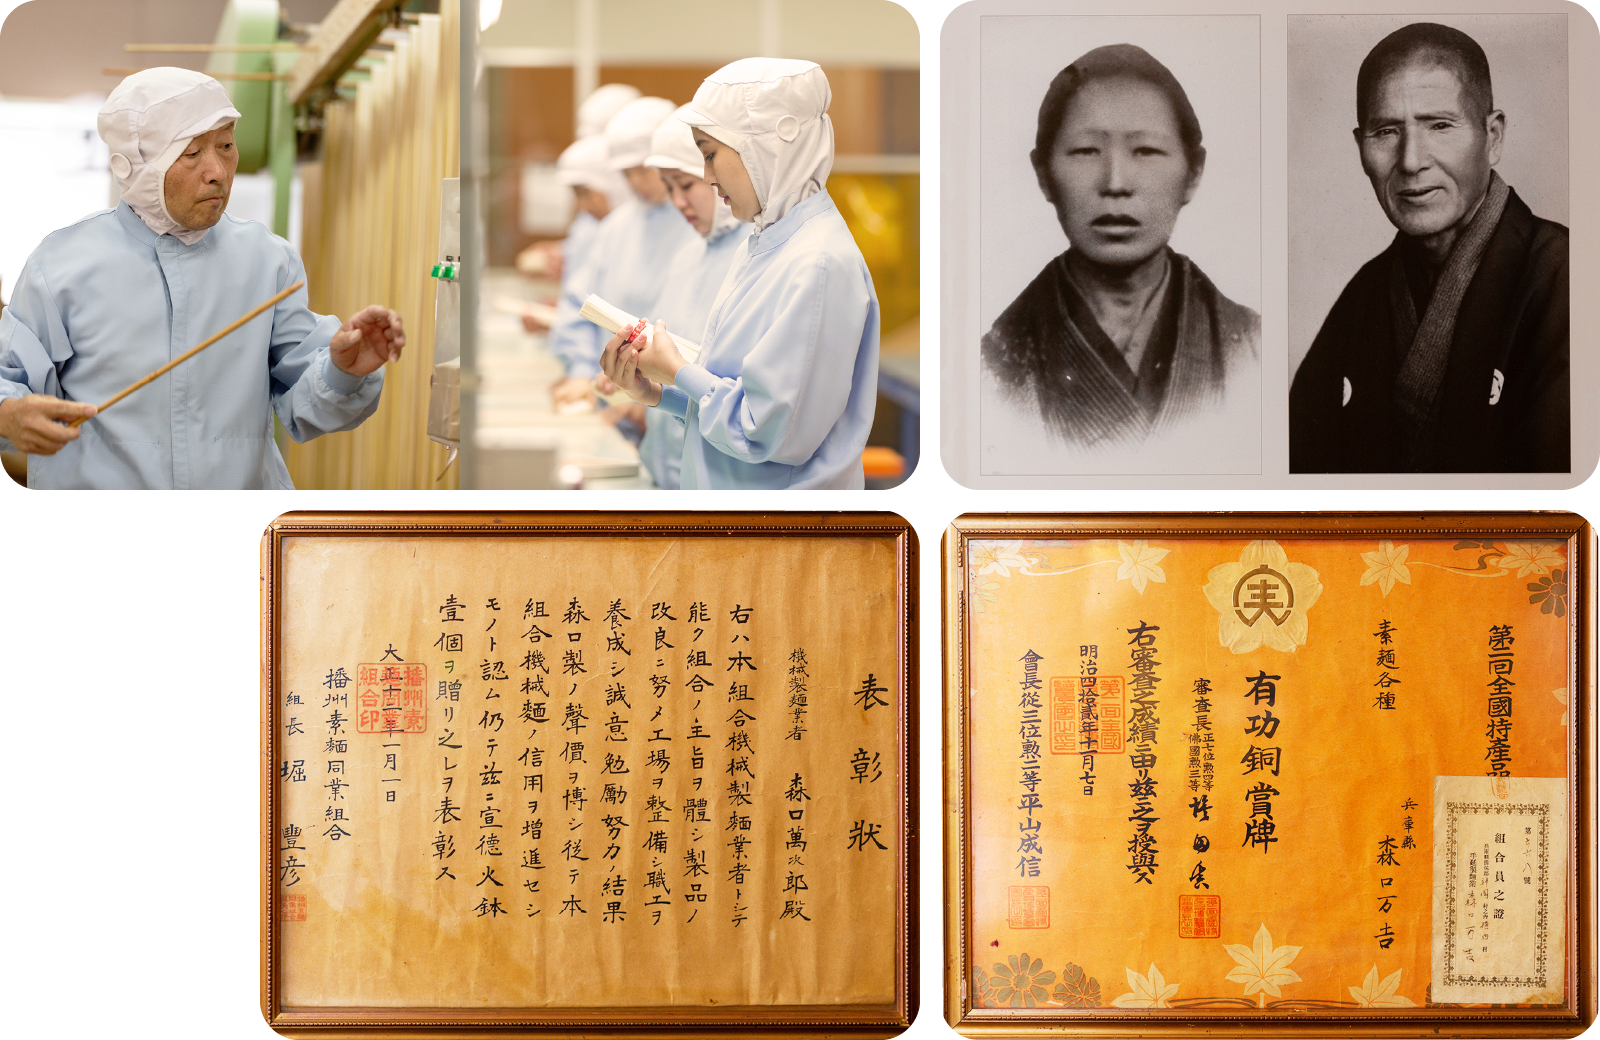 表彰状
機械製麺業者 森口萬次郎殿
右ハ本組合機械製麺業者トシテ
能ク組合ノ主旨ヲ體シ製品ノ
改良ニ努メ工場ヲ整備シ職工ヲ
養成シ誠意勉勵努力ノ結果
森口製ノ聲價ヲ博シ従テ本
組合機械麺ノ信用ヲ增進セシ
モノト認ム仍テ茲ニ宣德火鉢
壹個ヲ贈リ之レヲ表彰ス
大正十二年一月一日
播州素麺同業組合
組長 堀豐彦
播州素麺同業組合印
第二回全國特產品
素麺各種
兵庫縣
森口万吉
有功銅賞牌
審査長 正七位勲四等 佛國勲三等
右審査之成績ニ由リ茲ニ之ヲ授與ス
明治四拾貳年十一月七日
會長從三位勲二等平山成信
組合員之證